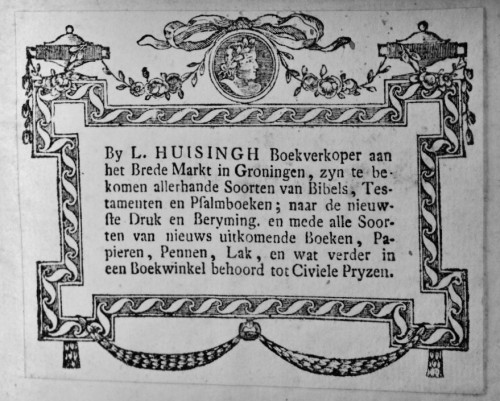 By L. HUISINGH Boekverkoper aan
het Brede Markt in Groningen, zyn te be-
komen allerhande Soorten van Bibels, Tes-
tamenten en Pſalmboeken; naar de nieuw-
ſte Druk en Beryming. en mede alle Soor-
ten van nieuws uitkomende Boeken, Pa-
pieren, Pennen, Lak, en wat verder in
een Boekwinkel behoord tot Civiele Pryzen.